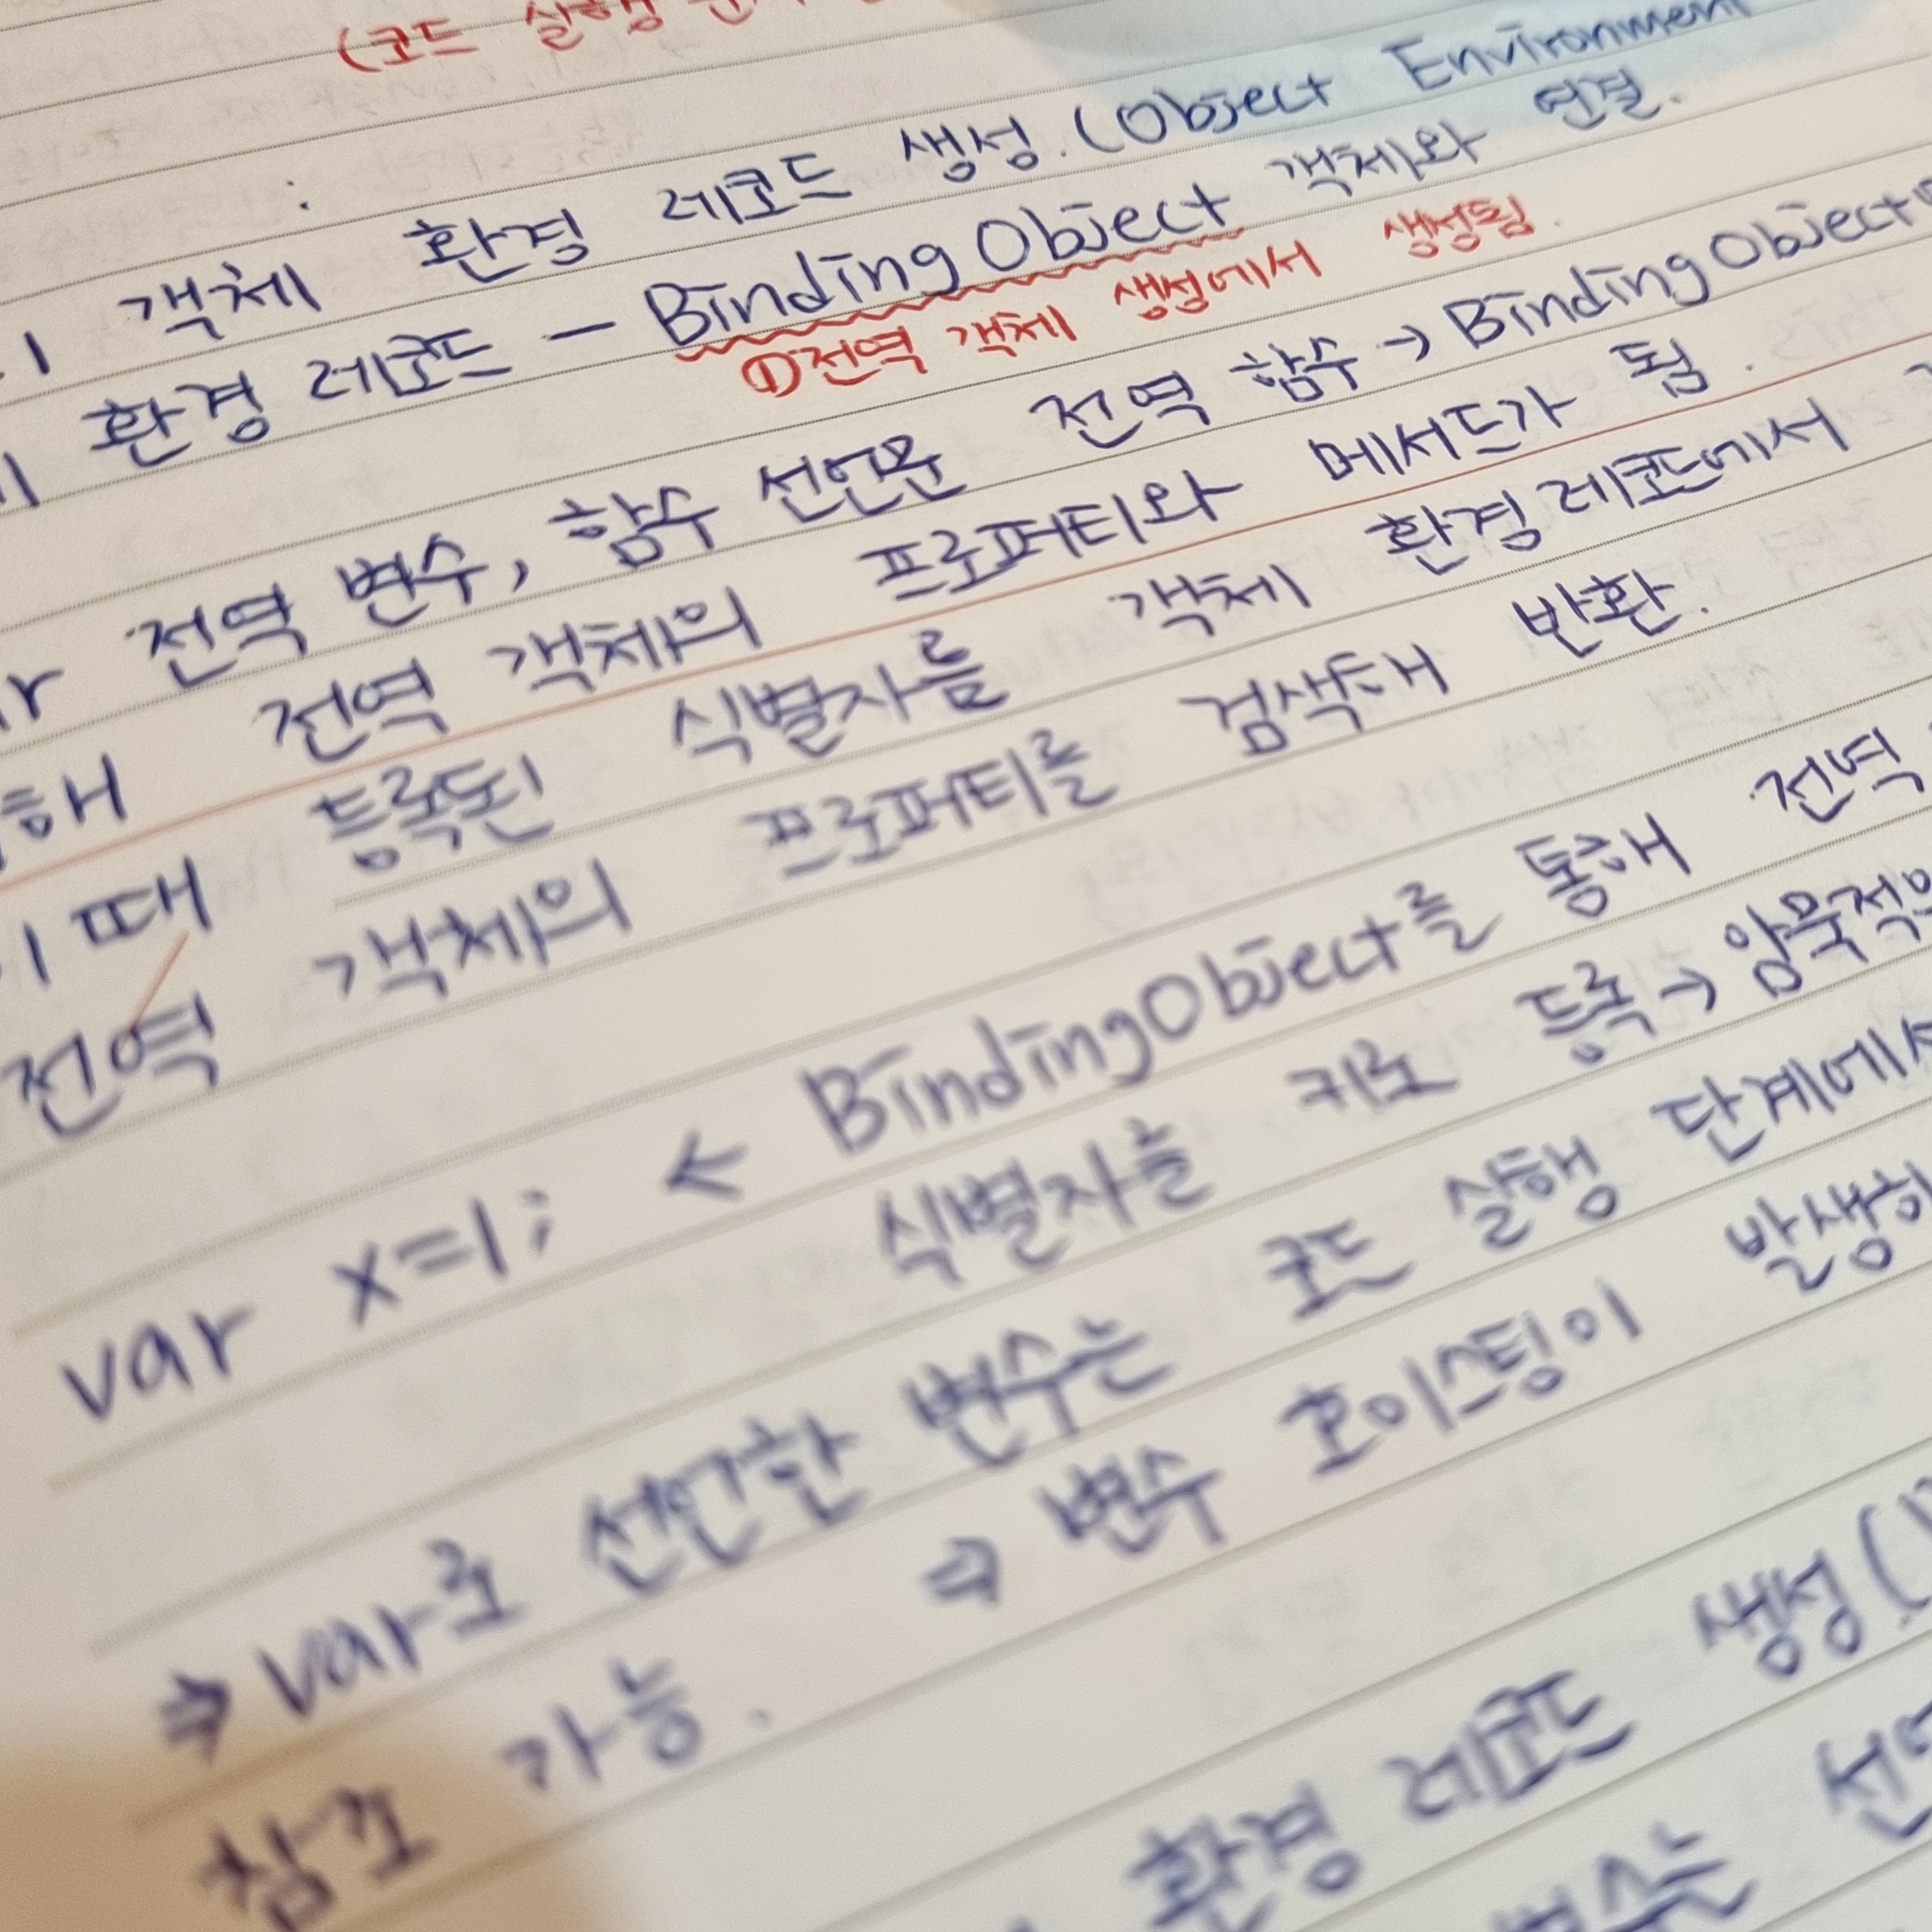 (코드 실행
객체 환경 레코드 생성. (Object Environment
환경 레코드 - BindingObject 객체와 연결.
①전역 객체 생성에서 생성됨.
전역 변수, 함수 선언문 전역 함수 → BindingObject
전역 객체의 프로퍼티와 메서드가 됨.
때 등록된 식별자를 객체 환경 레코드에서
전역 객체의 프로퍼티를 검색해 반환.
var x=1; ← BindingObject를 통해 전역
식별자를 키로 등록 → 암묵적
⇒ var로 선언한 변수는 코드 실행 단계에서
참조 가능. ⇒ 변수 호이스팅이 발생
환경 레코드 생성(
변수는